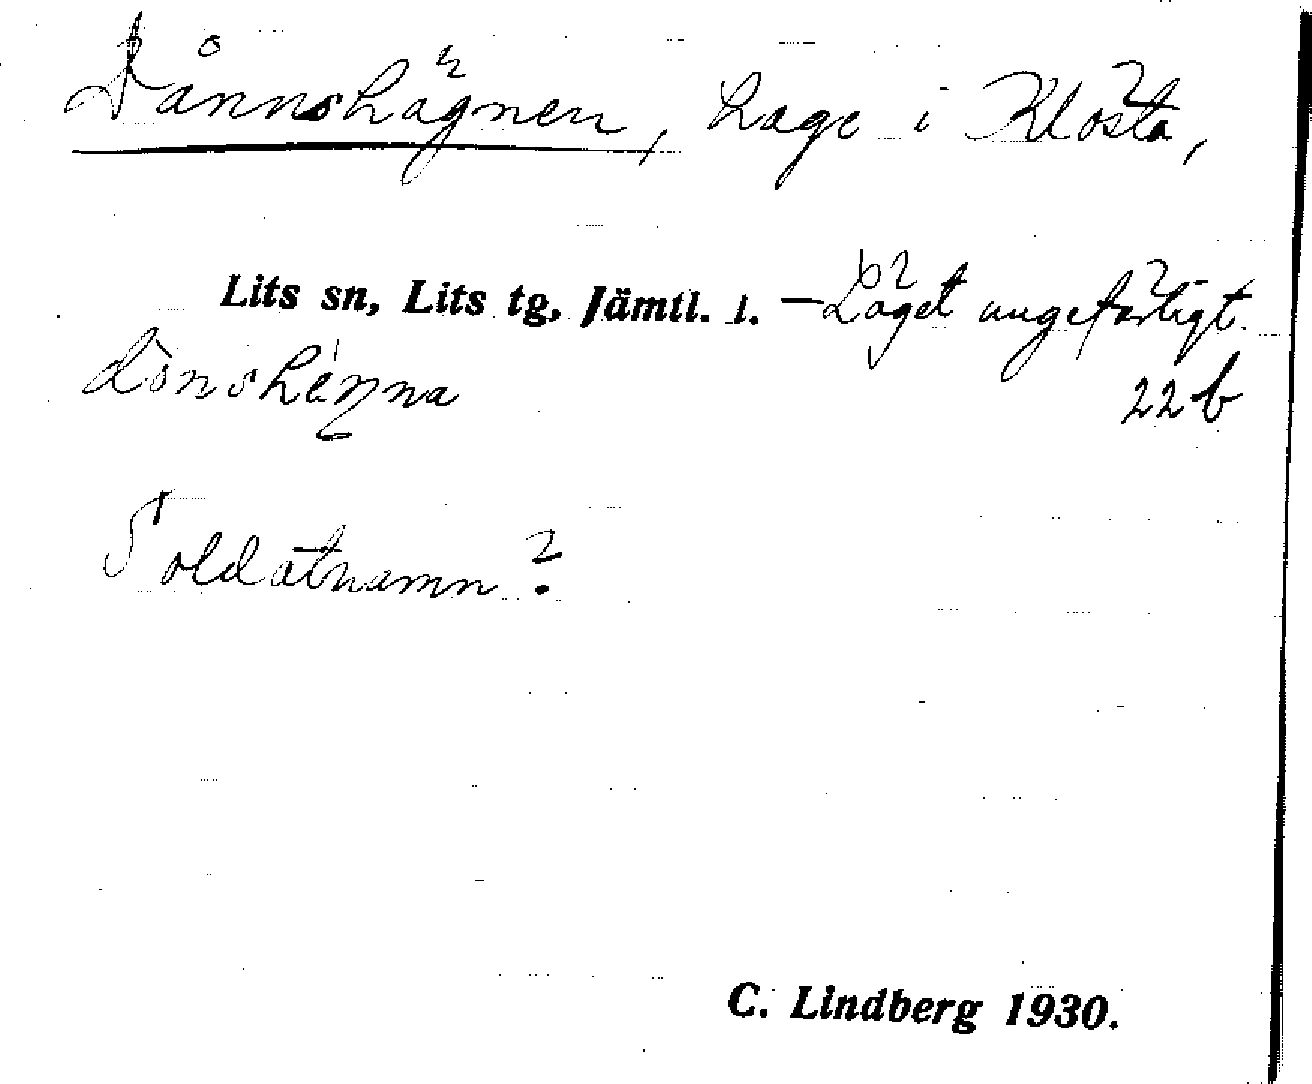 Dånnshägnen, Läge i Klösta,
Lits sn, Lits tg, Jämtl. l. – Läget ungefärligt.
22 b
Soldatnamn?
C. Lindberg 1930.